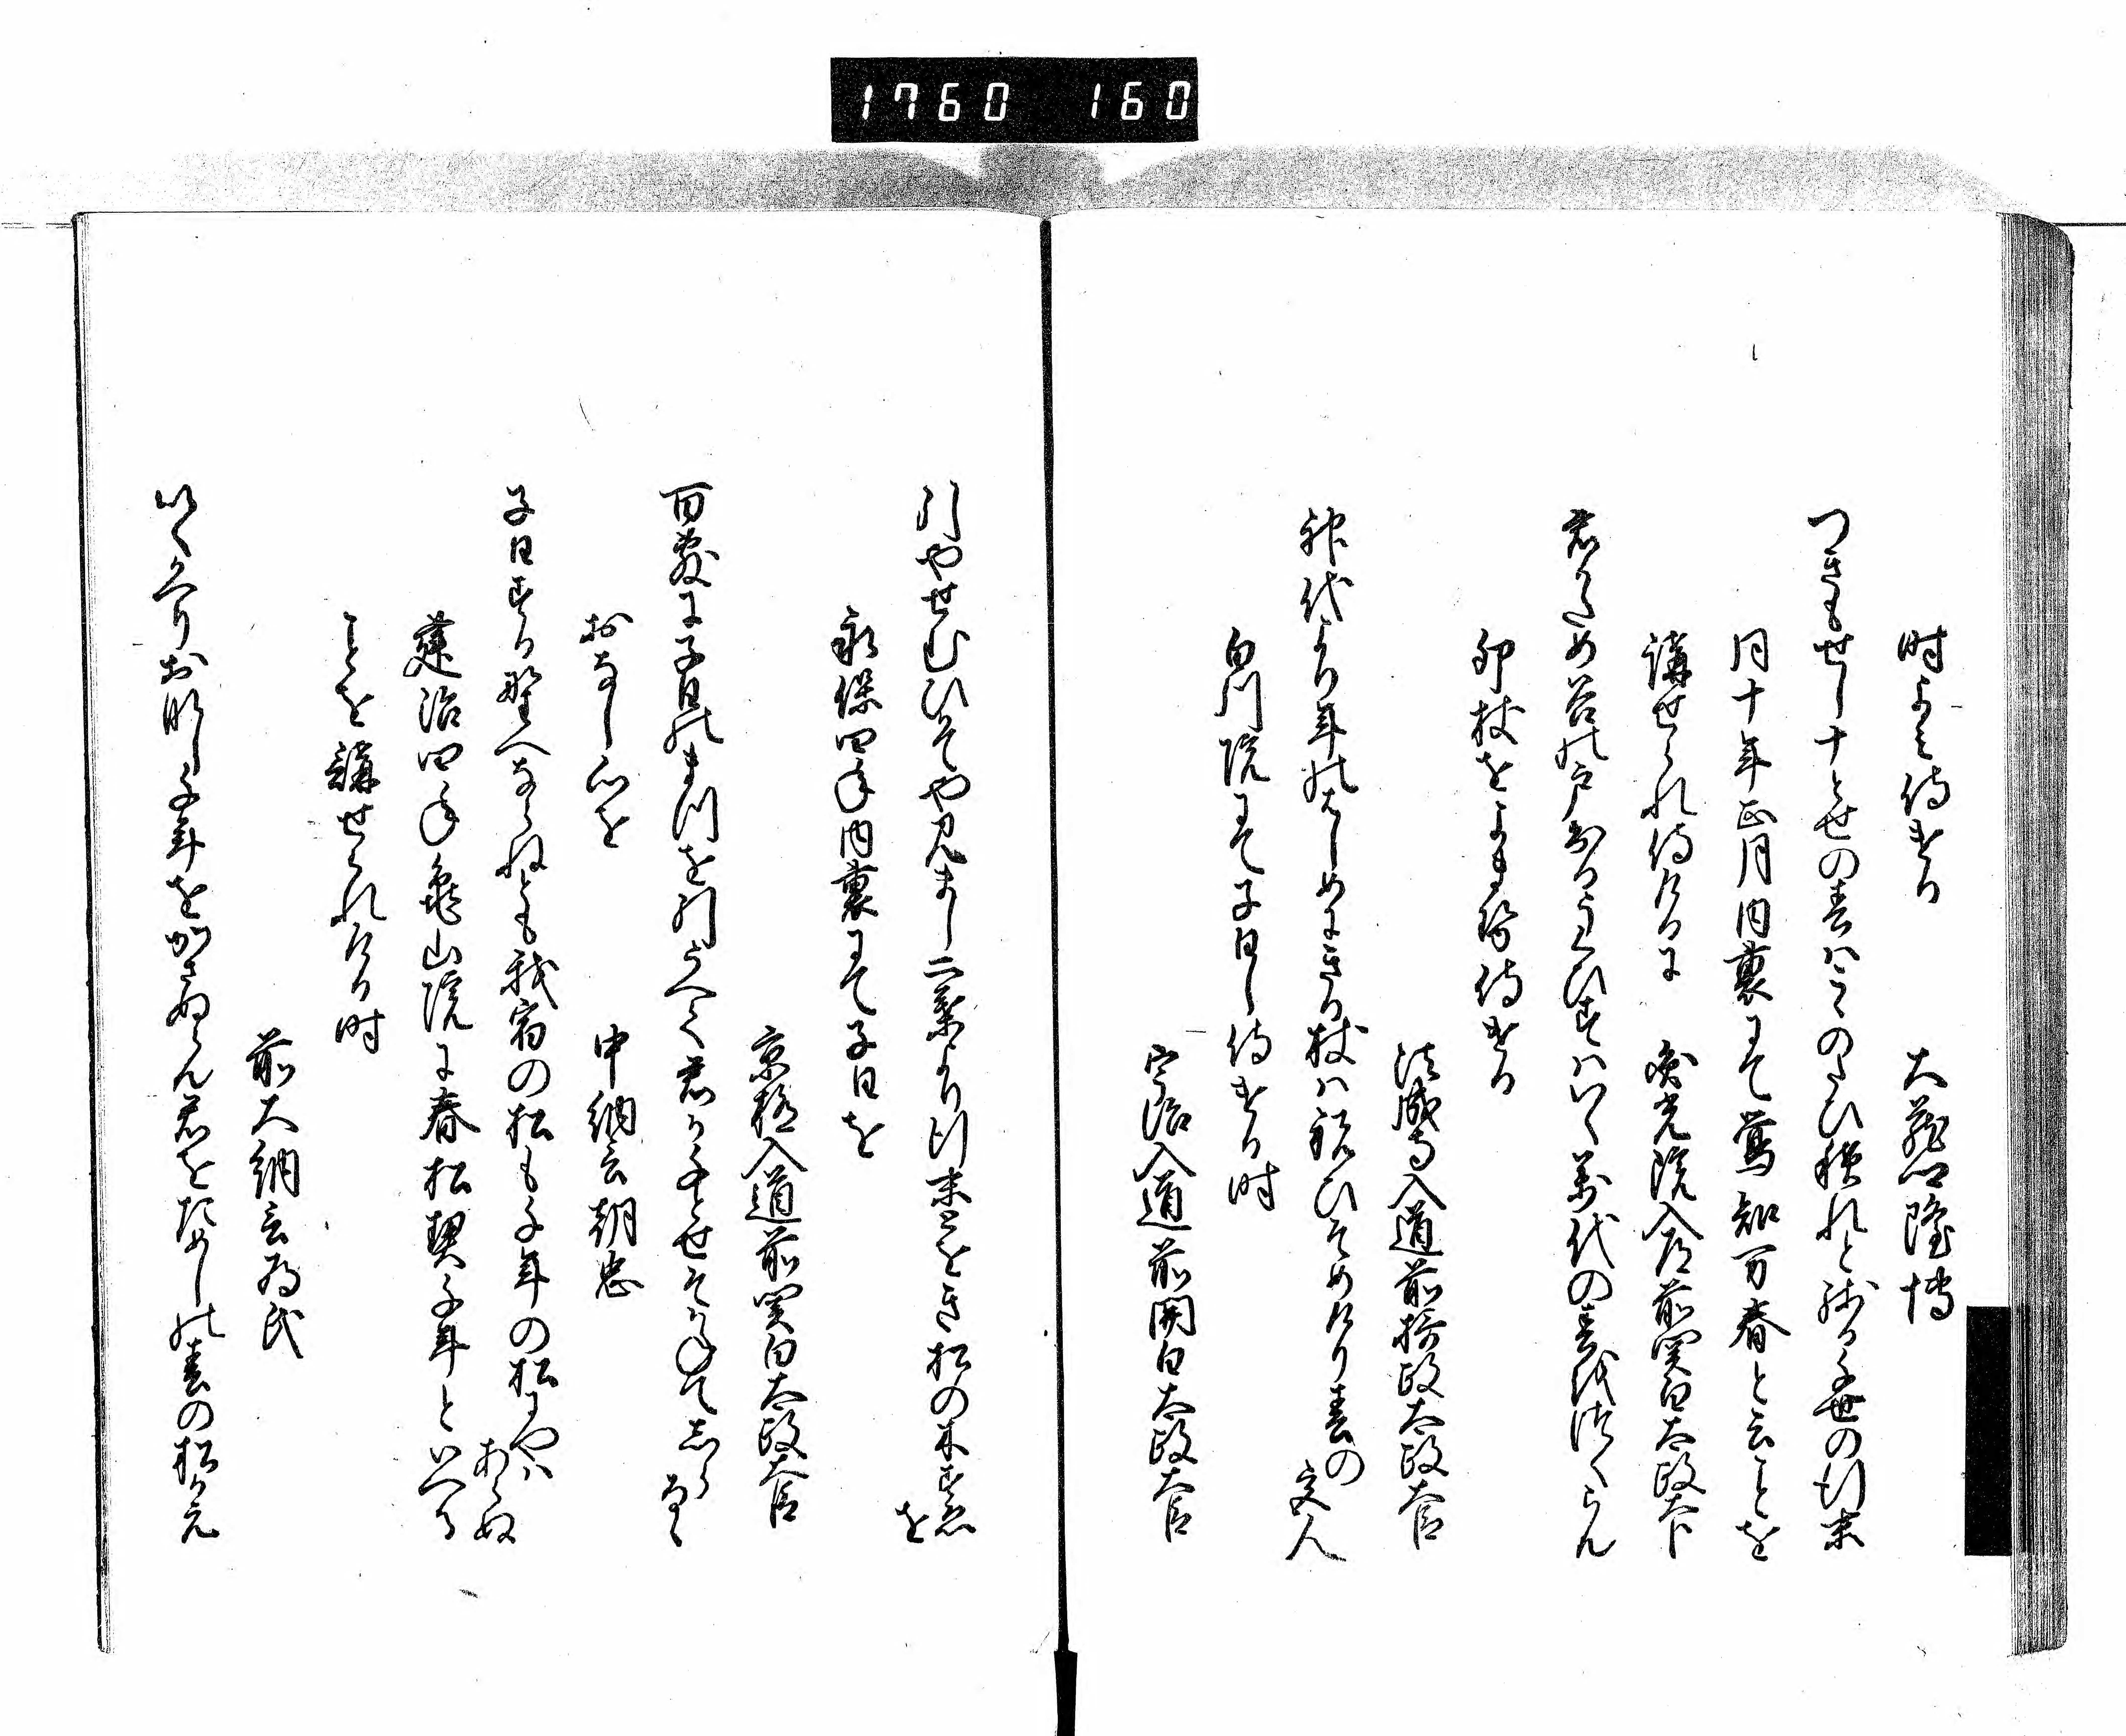 1760 160
時よみ侍ける
大蔵卿隆博
つきもせし十とせの春はこゝのたひ積れと残る千世の行末
同十年正月内裏にて鶯知万春と云ことを
講せられ侍けるに
照光院入道前関白太政大臣
君かため谷の戸出るうくひすはいく万代の春を
卯杖をよませ給侍ける
法成寺入道前摂政太政大臣
神代より年のはしめにきる杖は祝ひそめけり春の宮人
白川院にて子日し侍ける時
宇治入道前関白太政大臣
引やせむひかてや見まし二葉より行末とをき松の木すゑを
永保四年内裏にて子日を
京極入道前関白太政大臣
百敷に子日のまつを引うへて君か千とせそかねてしらるゝ
おなし心を
中納言朝忠
子日する野へならねとも我宿の松も千年の松にやはあらぬ
建治四年亀山院に春松契千年といへる
ことを講せられける時
前大納言為氏
いくかへりおなし千年をかさぬらん君をためしの春の松か元